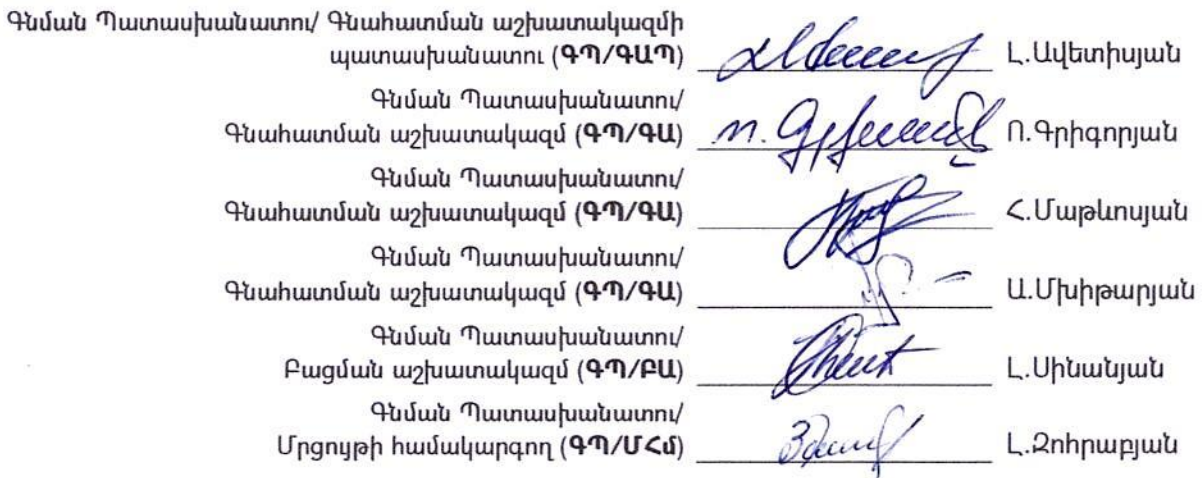 Գնման Պատասխանատու/ Գնահատման աշխատակազմի
պատասխանատու (ԳՊ/ԳԱՊ) Լ.Ավետիսյան
Գնման Պատասխանատու/
Գնահատման աշխատակազմ (ԳՊ/ԳԱ) Ո.Գրիգորյան
Գնման Պատասխանատու/
Գնահատման աշխատակազմ (ԳՊ/ԳԱ) Հ.Մաթևոսյան
Գնման Պատասխանատու/
Գնահատման աշխատակազմ (ԳՊ/ԳԱ) Ա.Մխիթարյան
Գնման Պատասխանատու/
Բացման աշխատակազմ (ԳՊ/ԲԱ) Լ.Սինանյան
Գնման Պատասխանատու/
Մրցույթի համակարգող (ԳՊ/ՄՀմ) Լ.Զոհրաբյան